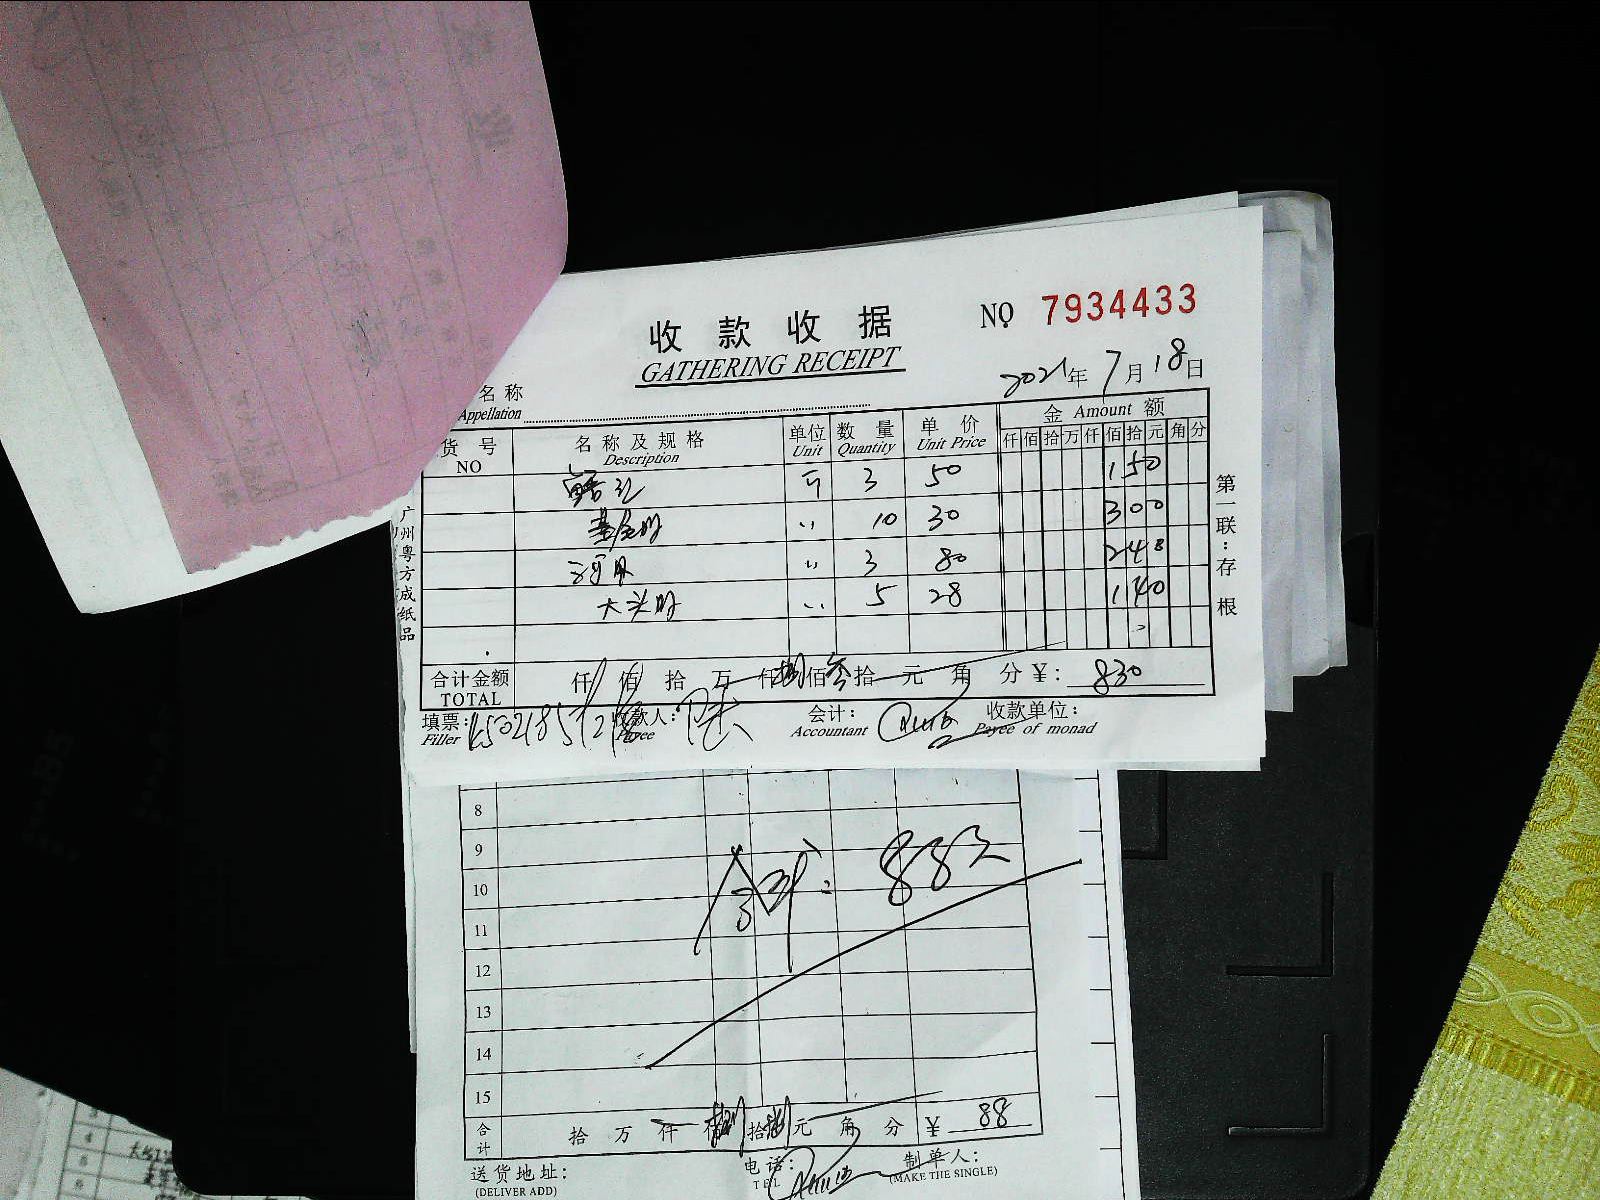 收款收据
GATHERING RECEIPT
NO 7934433
2021年7月18日
名称
Appellation
货号 名称及规格 单位 数量 单价 金 Amount 额
NO Description Unit Quantity Unit Price 仟佰拾万仟佰拾元角分
斤 3 50 150
基尾虾 〃 10 30 300
〃 3 80 240
大头虾 〃 5 28 140
合计金额 仟佰拾万仟捌佰叁拾元角分¥: 830
TOTAL
填票: 收款人: 会计: 收款单位:
Filler Payee Accountant Payee of monad
第一联:存根
广州粤方成纸品
8
9
合计: 88元
10
11
12
13
14
15
合计 拾万仟佰捌拾捌元角分 ¥ 88
送货地址: 电话: 制单人:
(DELIVER ADD) TEL (MAKE THE SINGLE)